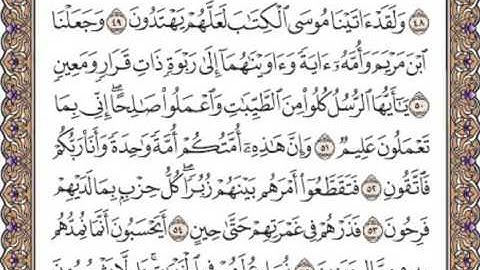 ٤٨ وَلَقَدْ ءَاتَيْنَا مُوسَى الْكِتَابَ لَعَلَّهُمْ يَهْتَدُونَ ٤٩ وَجَعَلْنَا
ابْنَ مَرْيَمَ وَأُمَّهُ ءَايَةً وَءَاوَيْنَاهُمَا إِلَى رَبْوَةٍ ذَاتِ قَرَارٍ وَمَعِينٍ
٥٠ يَا أَيُّهَا الرُّسُلُ كُلُوا مِنَ الطَّيِّبَاتِ وَاعْمَلُوا صَالِحًا إِنِّي بِمَا
تَعْمَلُونَ عَلِيمٌ ٥١ وَإِنَّ هَذِهِ أُمَّتُكُمْ أُمَّةً وَاحِدَةً وَأَنَا رَبُّكُمْ
فَاتَّقُونِ ٥٢ فَتَقَطَّعُوا أَمْرَهُمْ بَيْنَهُمْ زُبُرًا كُلُّ حِزْبٍ بِمَا لَدَيْهِمْ
فَرِحُونَ ٥٣ فَذَرْهُمْ فِي غَمْرَتِهِمْ حَتَّى حِينٍ ٥٤ أَيَحْسَبُونَ أَنَّمَا نُمِدُّهُمْ